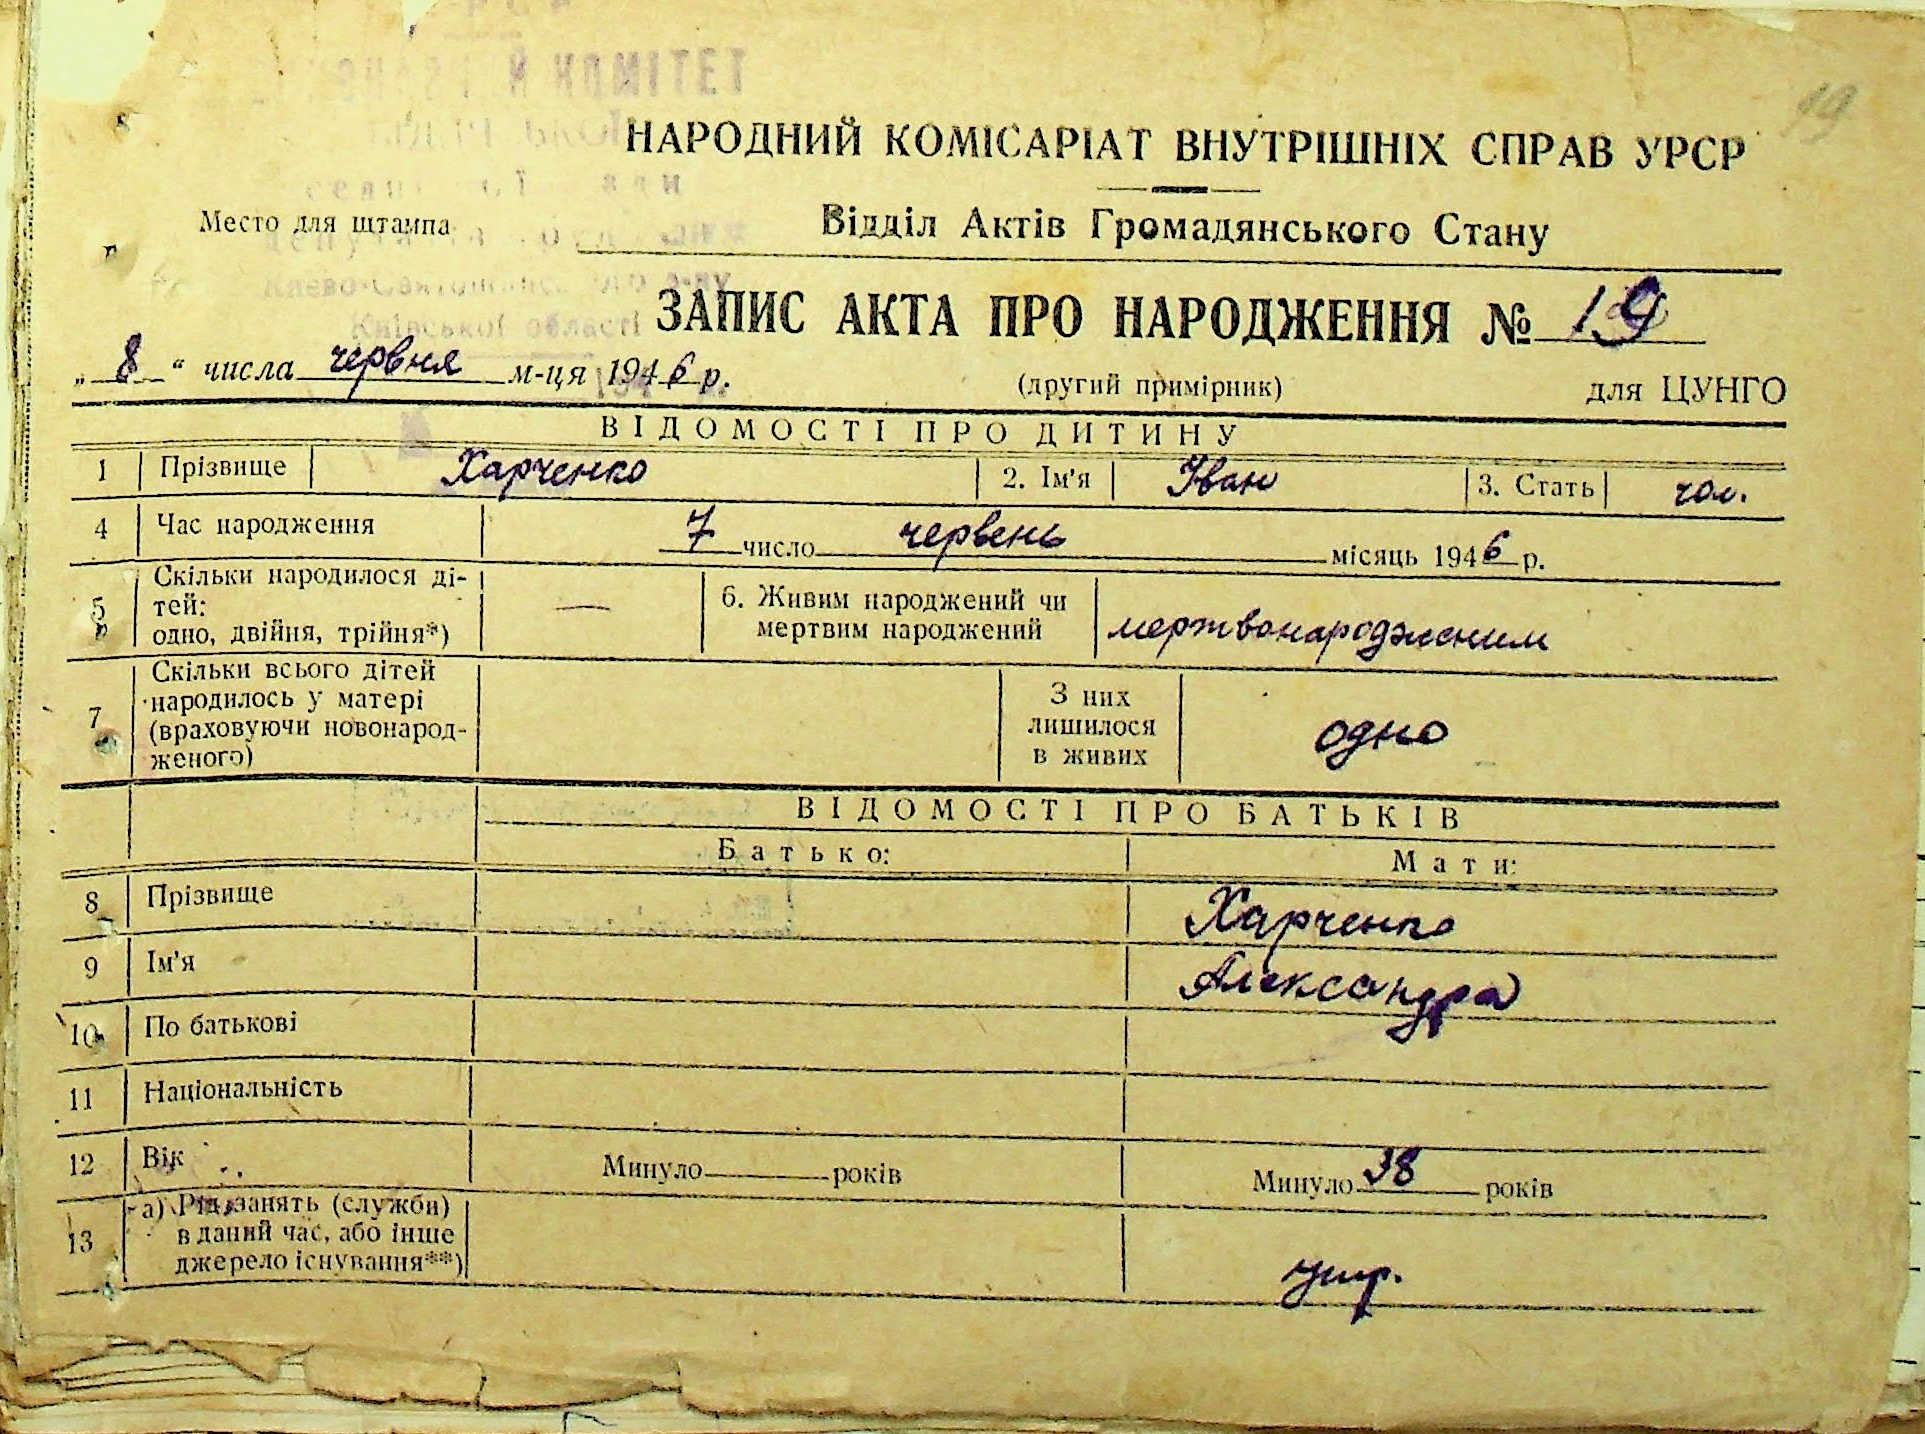 19
КОМІТЕТ
НАРОДНИЙ КОМІСАРІАТ ВНУТРІШНІХ СПРАВ УРСР
Место для штампа
Відділ Актів Громадянського Стану
Київської області
ЗАПИС АКТА ПРО НАРОДЖЕННЯ № 19
„ 8 “ числа червня м-ця 1946 р.
(другий примірник) для ЦУНГО
ВІДОМОСТІ ПРО ДИТИНУ
1 Прізвище Харченко 2. Ім'я Іван 3. Стать чол.
4 Час народження 7 число червень місяць 1946 р.
5 Скільки народилося ді-
тей:
одно, двійня, трійня*) —
6. Живим народжений чи
мертвим народжений мертвонародженим
7 Скільки всього дітей
народилось у матері
(враховуючи новонарод-
женого)
З них
лишилося
в живих одно
ВІДОМОСТІ ПРО БАТЬКІВ
Батько: Мати:
8 Прізвище Харченко
9 Ім'я Александра
10 По батькові
11 Національність
12 Вік Минуло років Минуло 38 років
13 а) Рід занять (служби)
в даний час, або інше
джерело існування**)